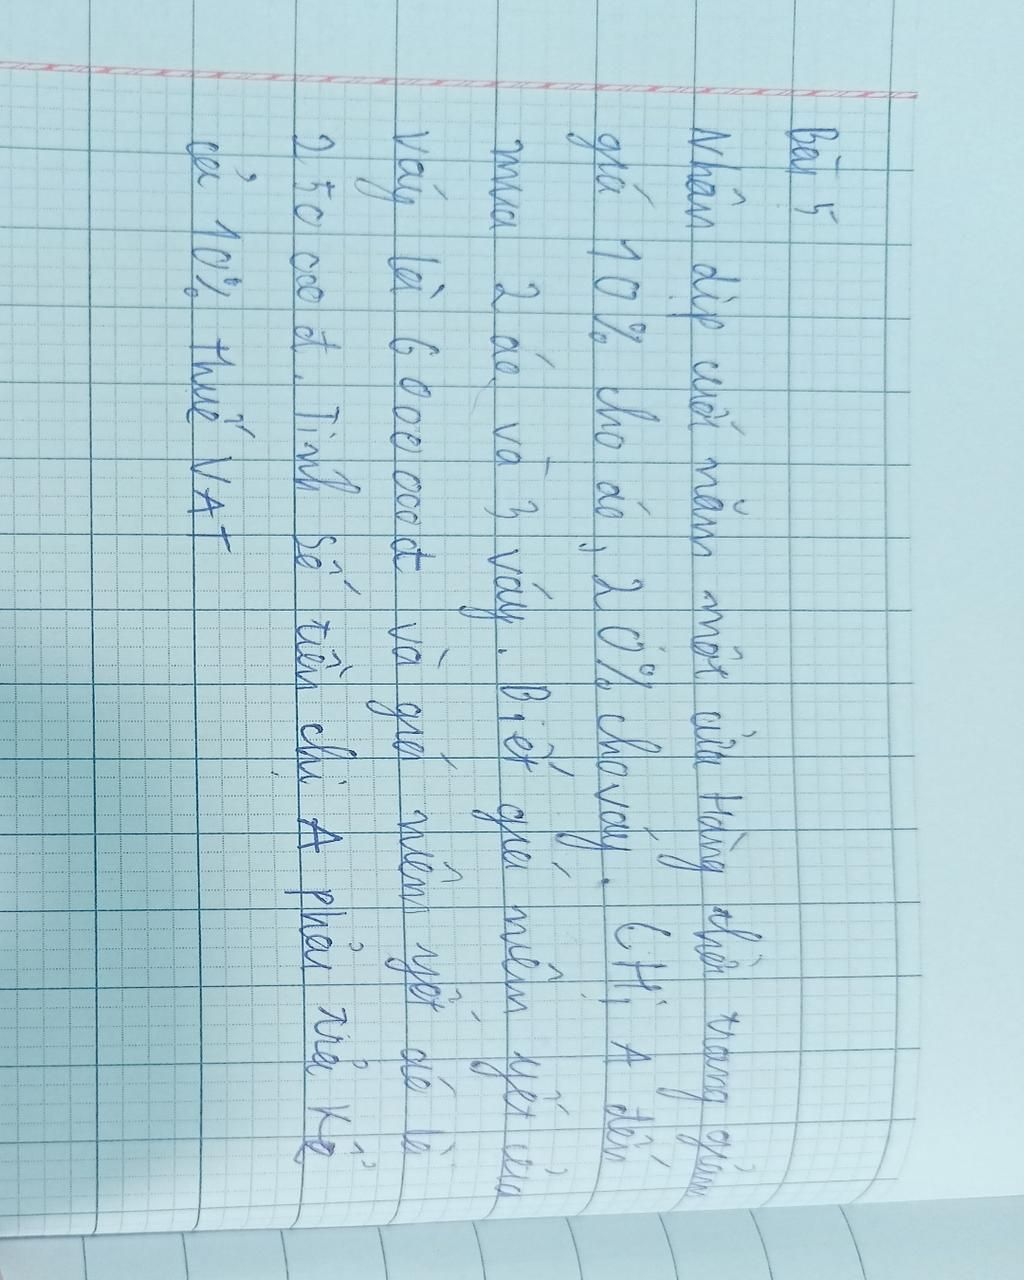 Bài 5
Nhân dịp cuối năm một cửa Hàng thời trang giảm
giá 10% cho áo, 20% cho váy. CHị A đến
mua 2 áo và 3 váy. Biết giá niêm yết của
váy là 600 000đ và giá niêm yết áo là
250 000đ. Tính số tiền chị A phải trả Kể
cả 10% thuế VAT